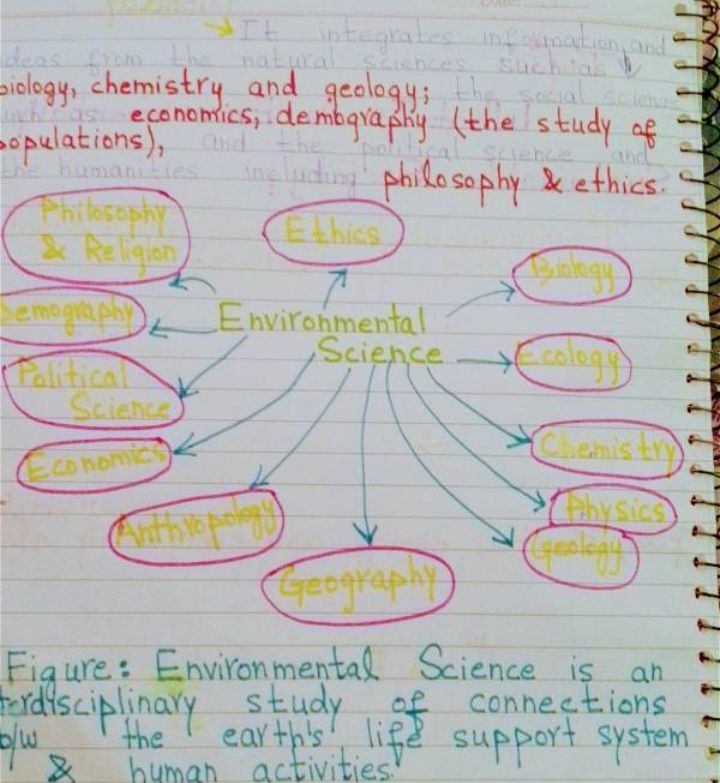 It integrates information and
ideas from the natural sciences such as
biology, chemistry and geology; the social science
such as economics, demography (the study of
populations), and the political science and
the humanities including philosophy & ethics.
Philosophy
& Religion
Ethics
Biology
Demography
Environmental
Science
Ecology
Political
Science
Economics
Chemistry
Anthropology
Physics
Geology
Geography
Figure: Environmental Science is an
terdisciplinary study of connections
b/w the earth's life support system
& human activities.